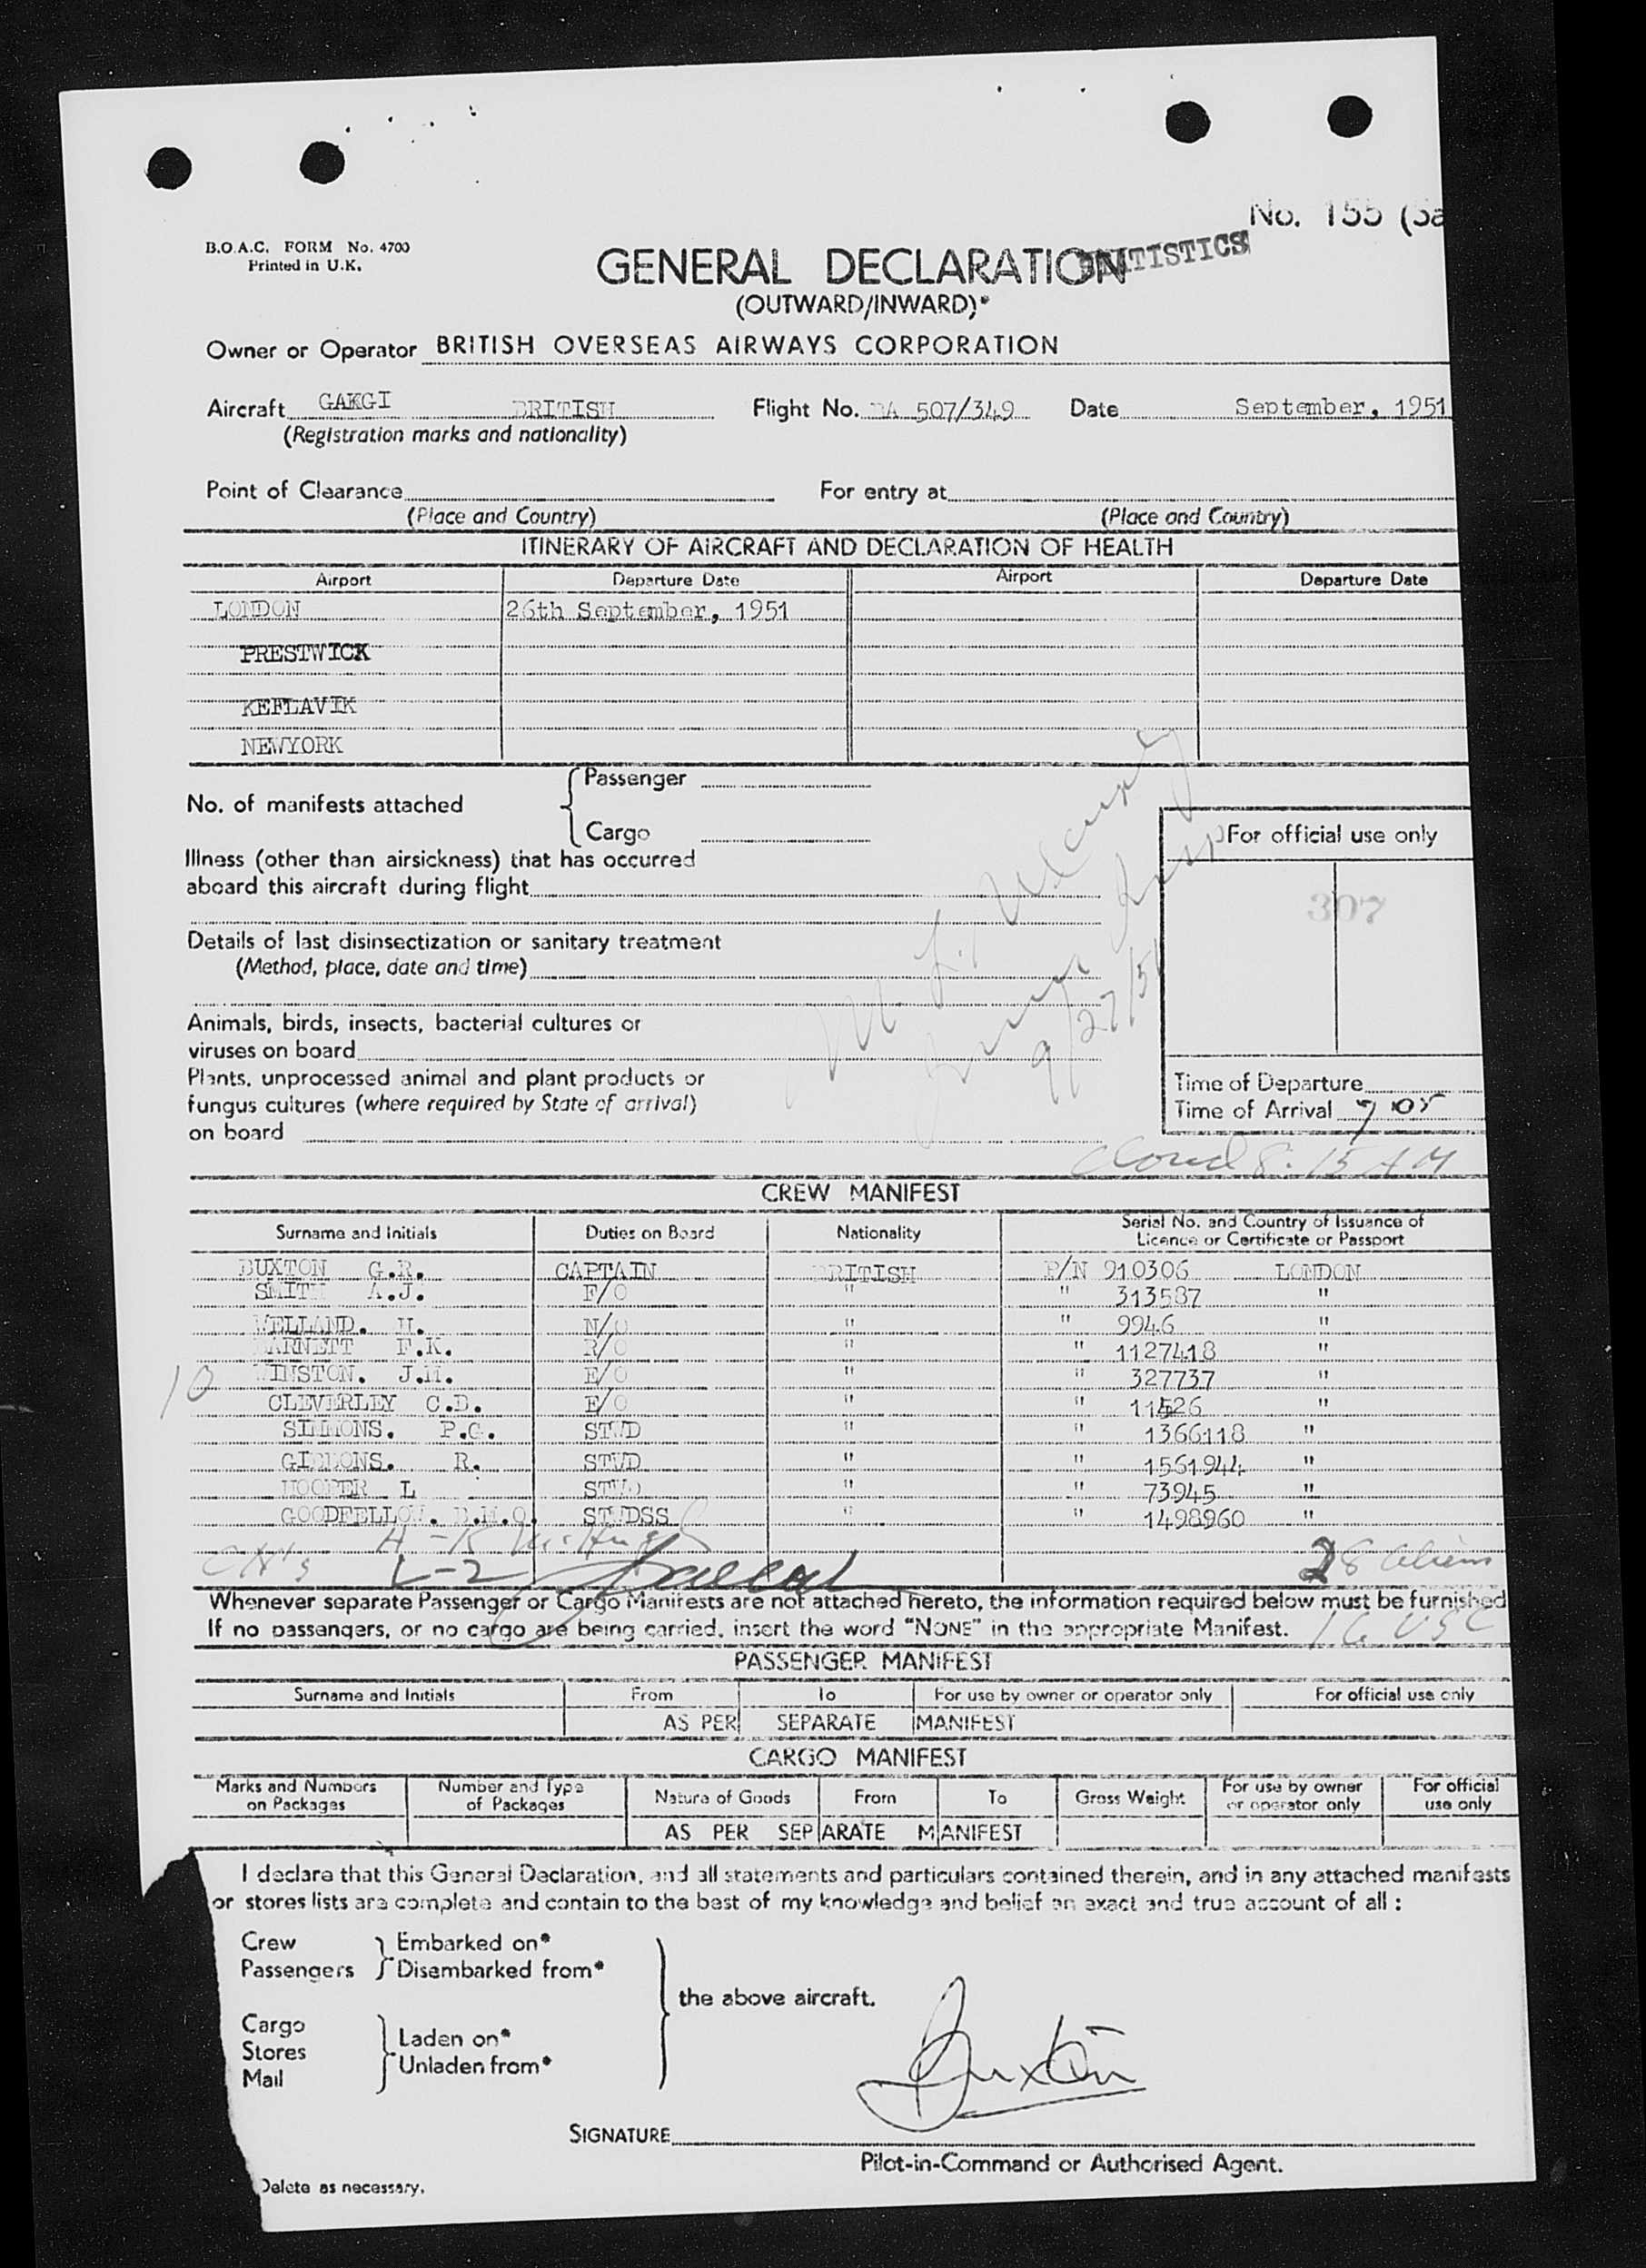 No. 155
B.O.A.C. FORM No. 4700
Printed in U.K.
GENERAL DECLARATION
STATISTICS
(OUTWARD/INWARD)*
Owner or Operator BRITISH OVERSEAS AIRWAYS CORPORATION
Aircraft GAKGI BRITISH Flight No. BA 507/349 Date September, 1951
(Registration marks and nationality)
Point of Clearance For entry at
(Place and Country) (Place and Country)
ITINERARY OF AIRCRAFT AND DECLARATION OF HEALTH
Airport Departure Date Airport Departure Date
LONDON 26th September, 1951
PRESTWICK
KEFLAVIK
NEWYORK
No. of manifests attached { Passenger
Cargo
For official use only
307
Illness (other than airsickness) that has occurred
aboard this aircraft during flight
Details of last disinsectization or sanitary treatment
(Method, place, date and time)
9/27/51
Animals, birds, insects, bacterial cultures or
viruses on board
Plants, unprocessed animal and plant products or
fungus cultures (where required by State of arrival)
on board
Time of Departure
Time of Arrival 7 05
8:15 AM
CREW MANIFEST
Surname and Initials Duties on Board Nationality Serial No. and Country of Issuance of
Licence or Certificate or Passport
BUXTON G.R. CAPTAIN BRITISH P/N 910306 LONDON
SMITH A.J. F/O " " 313587 "
WELLAND. H. N/O " " 9946 "
BARNETT F.K. R/O " " 1127418 "
10 WINSTON. J.M. E/O " " 327737 "
CLEVERLEY C.D. E/O " " 11526 "
SIMMONS. P.G. STWD " " 1366118 "
GIBBONS. R. STWD " " 1561944 "
HOOPER L STWD " " 73945 "
GOODFELLOW. B.M.O. STWDSS " " 1498960 "
L-2 28 aliens
Whenever separate Passenger or Cargo Manifests are not attached hereto, the information required below must be furnished
If no passengers, or no cargo are being carried, insert the word "NONE" in the appropriate Manifest. 16 USC
PASSENGER MANIFEST
Surname and Initials From To For use by owner or operator only For official use only
AS PER SEPARATE MANIFEST
CARGO MANIFEST
Marks and Numbers on Packages Number and Type of Packages Nature of Goods From To Gross Weight For use by owner or operator only For official use only
AS PER SEPARATE MANIFEST
I declare that this General Declaration, and all statements and particulars contained therein, and in any attached manifests
or stores lists are complete and contain to the best of my knowledge and belief an exact and true account of all :
Crew } Embarked on*
Passengers } Disembarked from*
the above aircraft.
Cargo
Stores } Laden on*
Mail } Unladen from*
Buxton
SIGNATURE
Pilot-in-Command or Authorised Agent.
Delete as necessary.